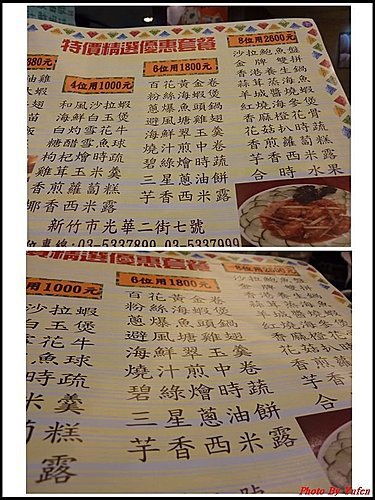 特價精選優惠套餐
380元
4位用1000元
和風沙拉蝦
海鮮白玉煲
白灼雪花牛
糖醋雪魚球
枸杞燴時蔬
雞茸玉米羹
香煎蘿蔔糕
椰香西米露
6位用1800元
百花黃金卷
粉絲海蝦煲
蔥爆魚頭鍋
避風塘雞翅
海鮮翠玉羹
燒汁煎中卷
碧綠燴時蔬
三星蔥油餅
芋香西米露
8位用2600元
沙拉鮑魚盤
金牌雙拼
香港養生鍋
蒜茸蒸海魚
羊城醬燒蝦
紅燒海參煲
香麻橙花骨
花菇扒時蔬
香煎蘿蔔糕
芋香西米露
合時水果
新竹市光華二街七號
位專線:03-5337899 03-5337999
精選優惠套餐
用1000元
沙拉蝦
白玉煲
花牛
魚球
時蔬
米羹
糕
露
6位用1800元
百花黃金卷
粉絲海蝦煲
蔥爆魚頭鍋
避風塘雞翅
海鮮翠玉羹
燒汁煎中卷
碧綠燴時蔬
三星蔥油餅
芋香西米露
8位用2600元
沙拉鮑魚盤
金牌雙拼
香港養生鍋
蒜茸蒸海魚
羊城醬燒蝦
紅燒海參煲
香麻橙花
花菇扒
香煎蘿
芋香
合
Photo By Yufen